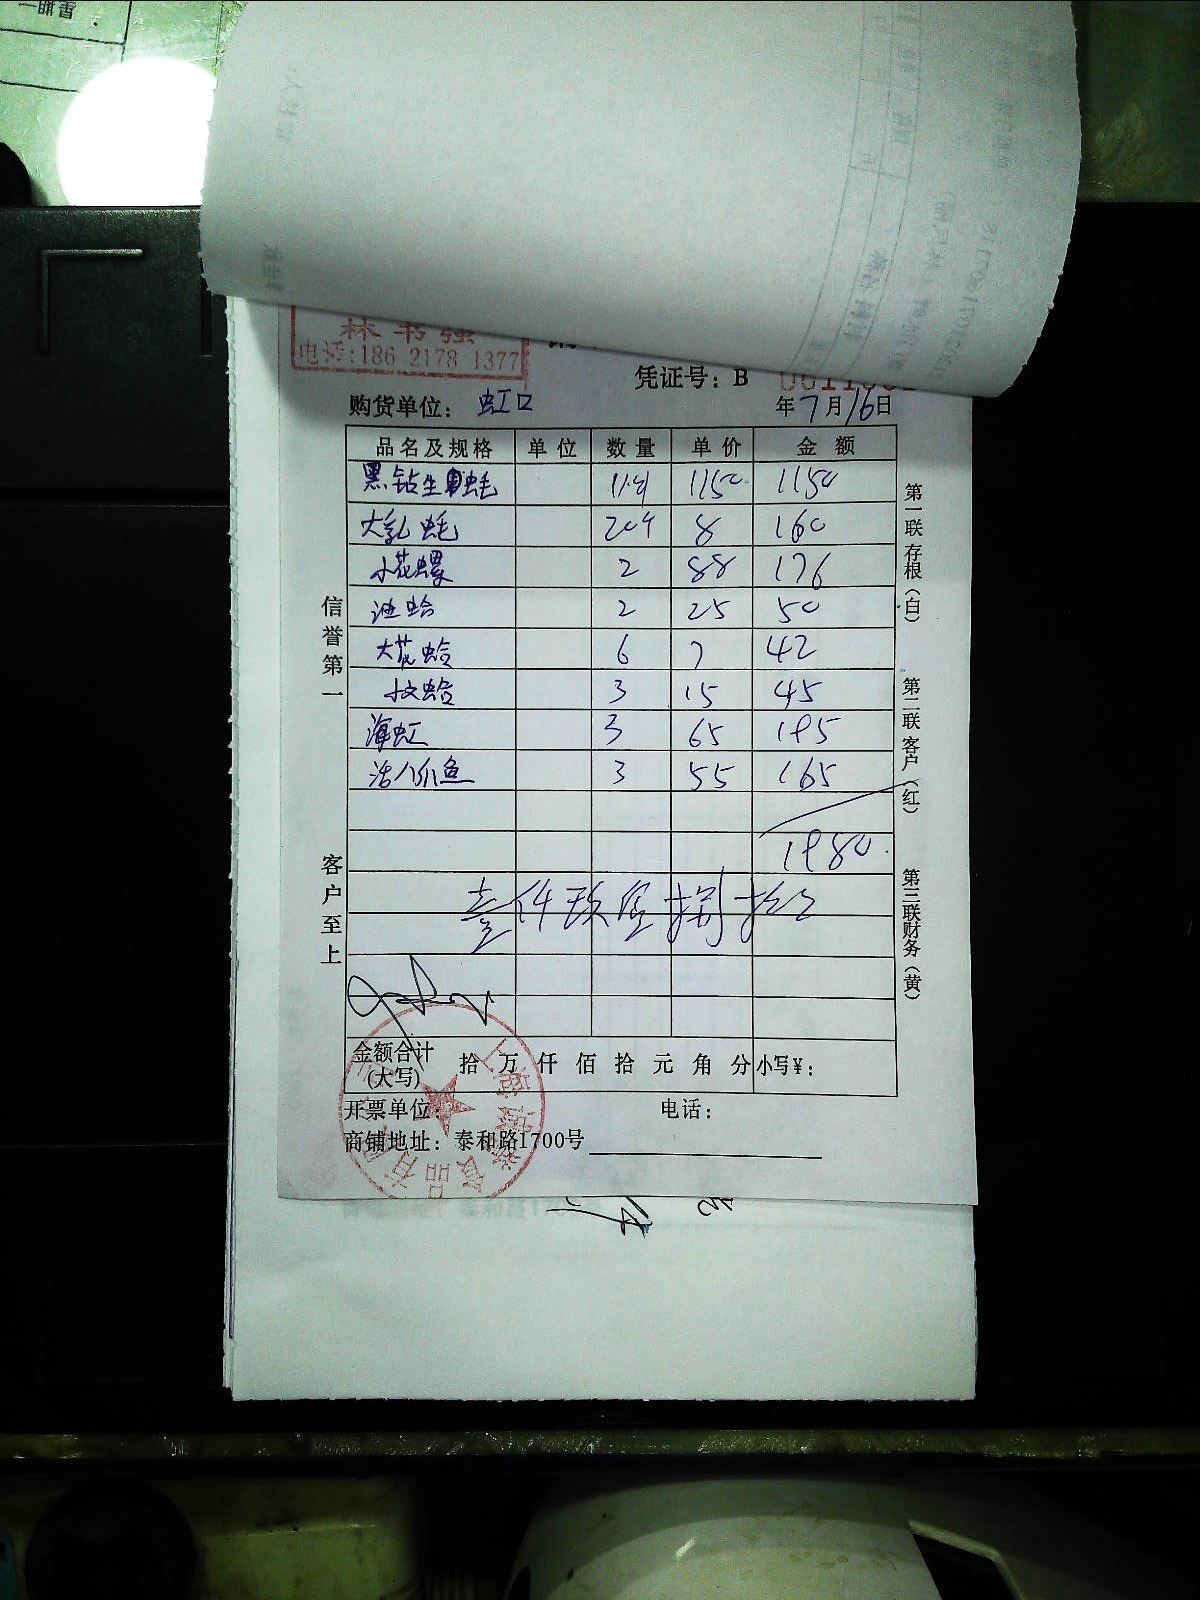 星期一
林书强
电话:186 2178 1377
凭证号: B
购货单位: 虹口
年7月16日
品名及规格 单位 数量 单价 金额
黑钻生蚝 1150 1150
大乳蚝 20个 8 160
小花螺 2 88 176
油蛤 2 25 50
大花蛤 6 7 42
文蛤 3 15 45
海虹 3 65 195
活八爪鱼 3 55 165
1980
壹仟玖佰捌拾
金额合计(大写) 拾 万 仟 佰 拾 元 角 分 小写¥:
开票单位: 电话:
商铺地址: 泰和路1700号
信誉第一
客户至上
第一联 存根(白)
第二联 客户(红)
第三联 财务(黄)